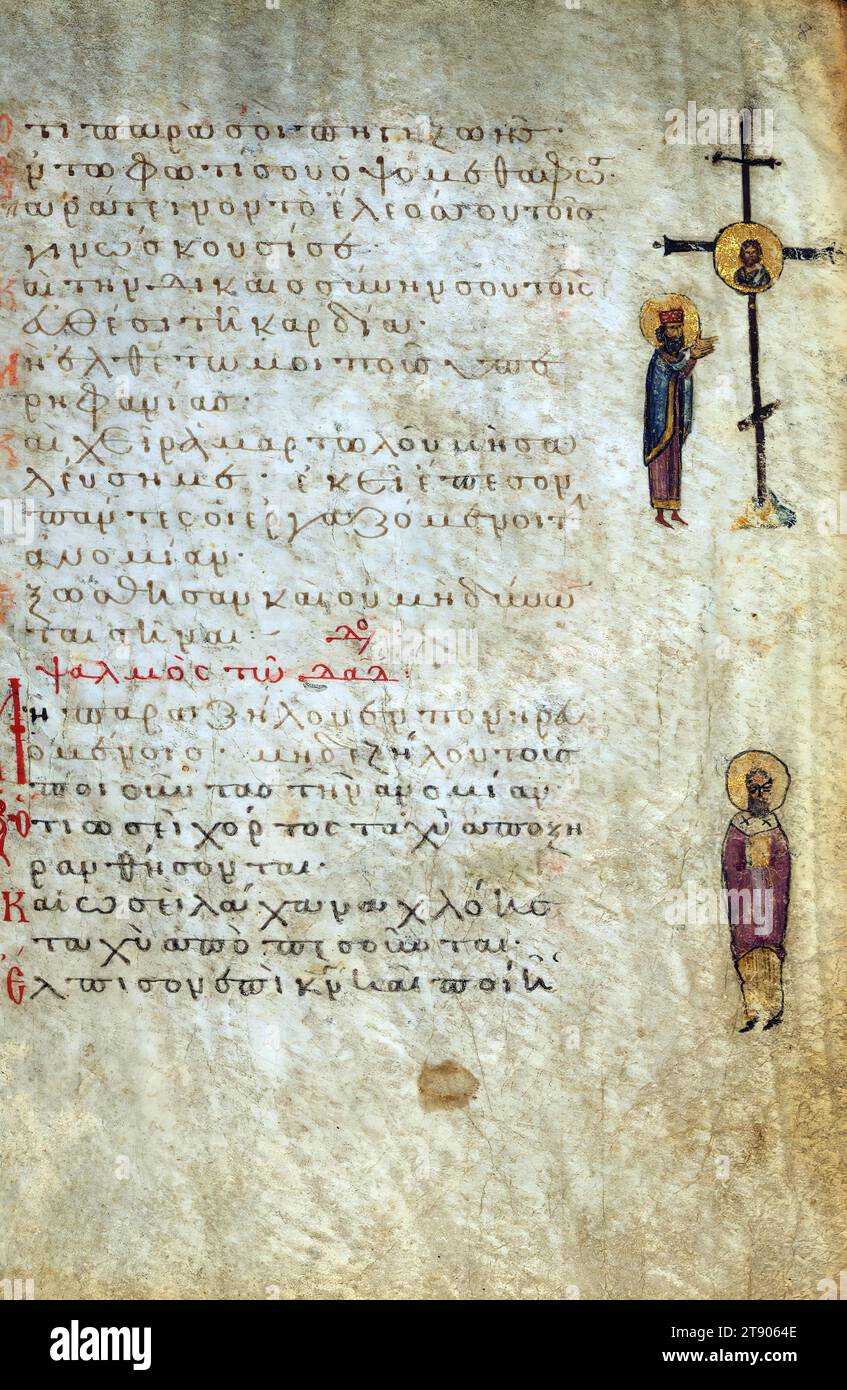 ὅτι παρὰ σοὶ πηγὴ ζωῆς·
ἐν τῷ φωτί σου ὀψόμεθα φῶς
παράτεινον τὸ ἔλεός σου τοῖς
γινώσκουσί σε·
καὶ τὴν δικαιοσύνην σου τοῖς
εὐθέσι τῇ καρδίᾳ·
Μὴ ἐλθέτω μοι ποὺς
ρηφανίας·
καὶ χεὶρ ἁμαρτωλοῦ μὴ σα
λεύσῃ με· ἐκεῖ ἔπεσον
πάντες οἱ ἐργαζόμενοι τ
ἀνομίαν·
ἐξώσθησαν καὶ οὐ μὴ δύνων
ται στῆναι
ψαλμὸς τῷ δαδ·
Μὴ παραζήλου ἐν πονηρε
υομένοις· μηδὲ ζήλου τοὺς
ποιοῦντας τὴν ἀνομίαν·
Ὅτι ὡσεὶ χόρτος ταχὺ ἀποξη
ρανθήσονται·
Καὶ ὡσεὶ λάχανα χλόης
ταχὺ ἀποπεσοῦνται·
Ἔλπισον ἐπὶ κν καὶ ποίει
alamy
Image ID: 2T9064E
www.alamy.com